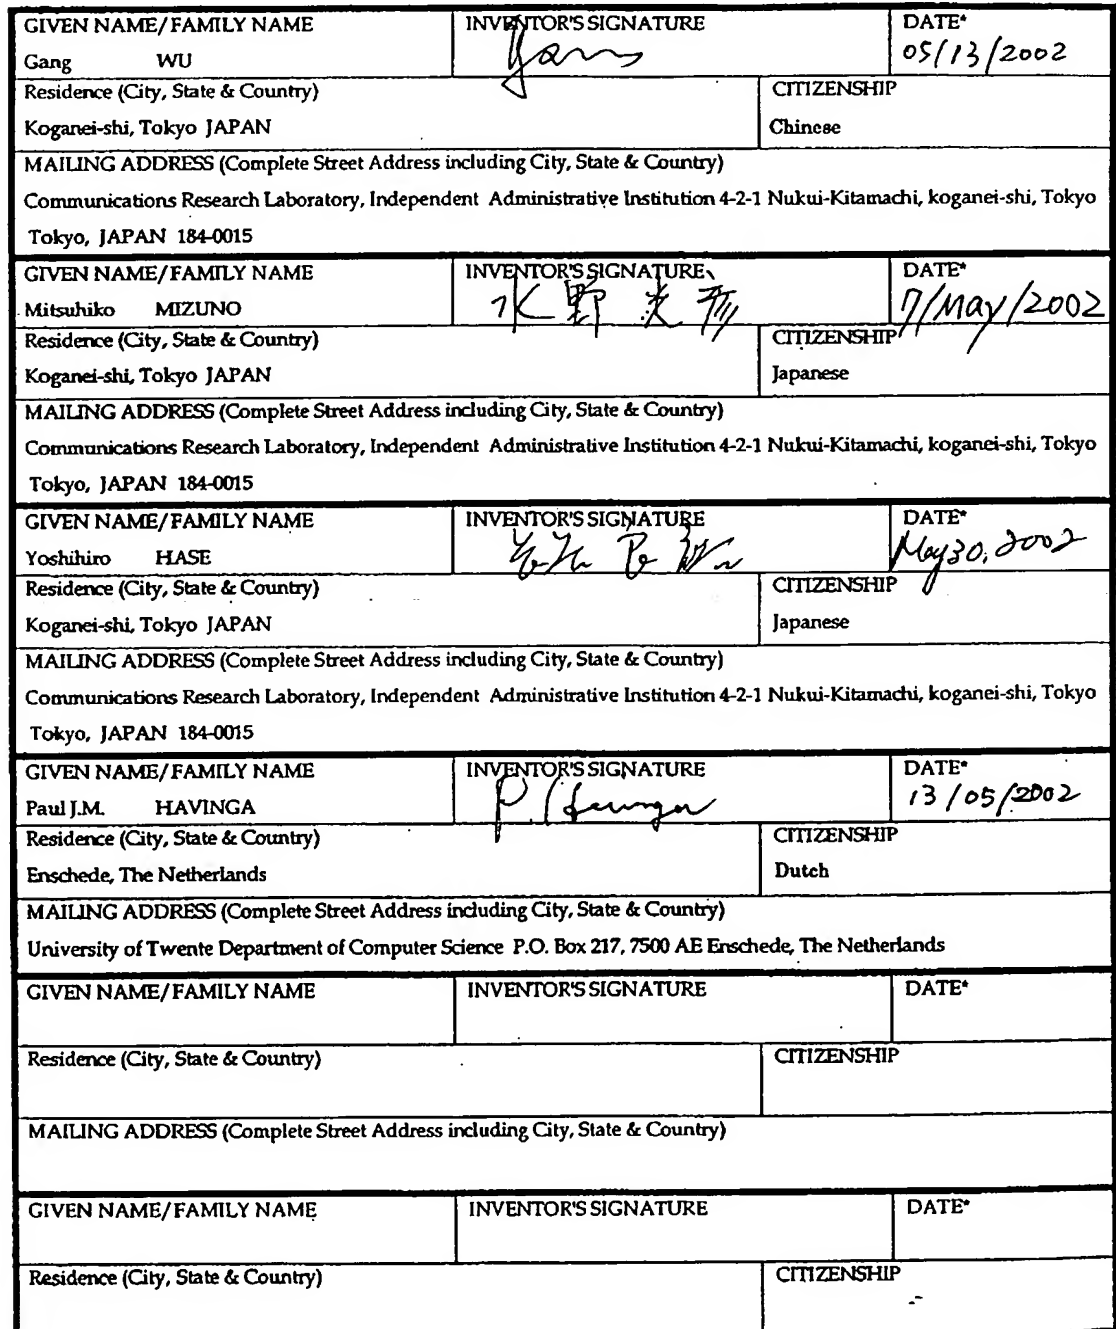 GIVEN NAME/FAMILY NAME INVENTOR'S SIGNATURE DATE*
Gang WU Gang 05/13/2002
Residence (City, State & Country) CITIZENSHIP
Koganei-shi, Tokyo JAPAN Chinese
MAILING ADDRESS (Complete Street Address including City, State & Country)
Communications Research Laboratory, Independent Administrative Institution 4-2-1 Nukui-Kitamachi, koganei-shi, Tokyo
Tokyo, JAPAN 184-0015
GIVEN NAME/FAMILY NAME INVENTOR'S SIGNATURE DATE*
Mitsuhiko MIZUNO 水野 光 7/May/2002
Residence (City, State & Country) CITIZENSHIP
Koganei-shi, Tokyo JAPAN Japanese
MAILING ADDRESS (Complete Street Address including City, State & Country)
Communications Research Laboratory, Independent Administrative Institution 4-2-1 Nukui-Kitamachi, koganei-shi, Tokyo
Tokyo, JAPAN 184-0015
GIVEN NAME/FAMILY NAME INVENTOR'S SIGNATURE DATE*
Yoshihiro HASE May 30, 2002
Residence (City, State & Country) CITIZENSHIP
Koganei-shi, Tokyo JAPAN Japanese
MAILING ADDRESS (Complete Street Address including City, State & Country)
Communications Research Laboratory, Independent Administrative Institution 4-2-1 Nukui-Kitamachi, koganei-shi, Tokyo
Tokyo, JAPAN 184-0015
GIVEN NAME/FAMILY NAME INVENTOR'S SIGNATURE DATE*
Paul J.M. HAVINGA P. Havinga 13/05/2002
Residence (City, State & Country) CITIZENSHIP
Enschede, The Netherlands Dutch
MAILING ADDRESS (Complete Street Address including City, State & Country)
University of Twente Department of Computer Science P.O. Box 217, 7500 AE Enschede, The Netherlands
GIVEN NAME/FAMILY NAME INVENTOR'S SIGNATURE DATE*
Residence (City, State & Country) CITIZENSHIP
MAILING ADDRESS (Complete Street Address including City, State & Country)
GIVEN NAME/FAMILY NAME INVENTOR'S SIGNATURE DATE*
Residence (City, State & Country) CITIZENSHIP